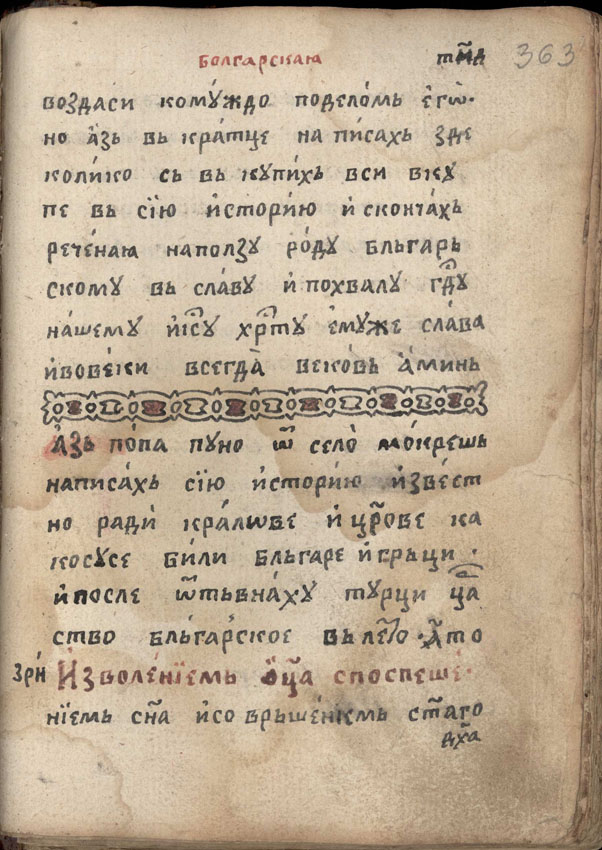 Болгарскаѧ
363
воздаси кому́ждо поделомь егѡ̀·
но а҆зь вь кра́тце написахь зде
коли́ко сь вь купи́хь вси вку
пе вь сїю и҆сторию и҆ скончахь
рече́наѧ наползу ро́ду бльгарь
скому вь сла́ву и҆ похвалу гдⷭ҇у
на́шему и҆іⷭ҇су хрⷭ҇ту ему́же слава
и҆вове́ки всегда̀ вековь а҆минь
А҆зь по́па пуно ѿ село̀ мо́крешь
написа́хь сїю и҆сторию и҆зве́ст
но ради̇̀ кра́лѡве и҆ цр҃ове ка
косусе би́ли бльгаре и҆ гръци ·
и҆ после ѿтьвна́ху турци ца
ство бльга́рское вь ле́то
Зри̇̀
И҆зволе́нїемь ѻ҆ц҃а споспеше́·
нїемь сн҃а и҆со врьше́нїемь ст҃аго
дх҃а